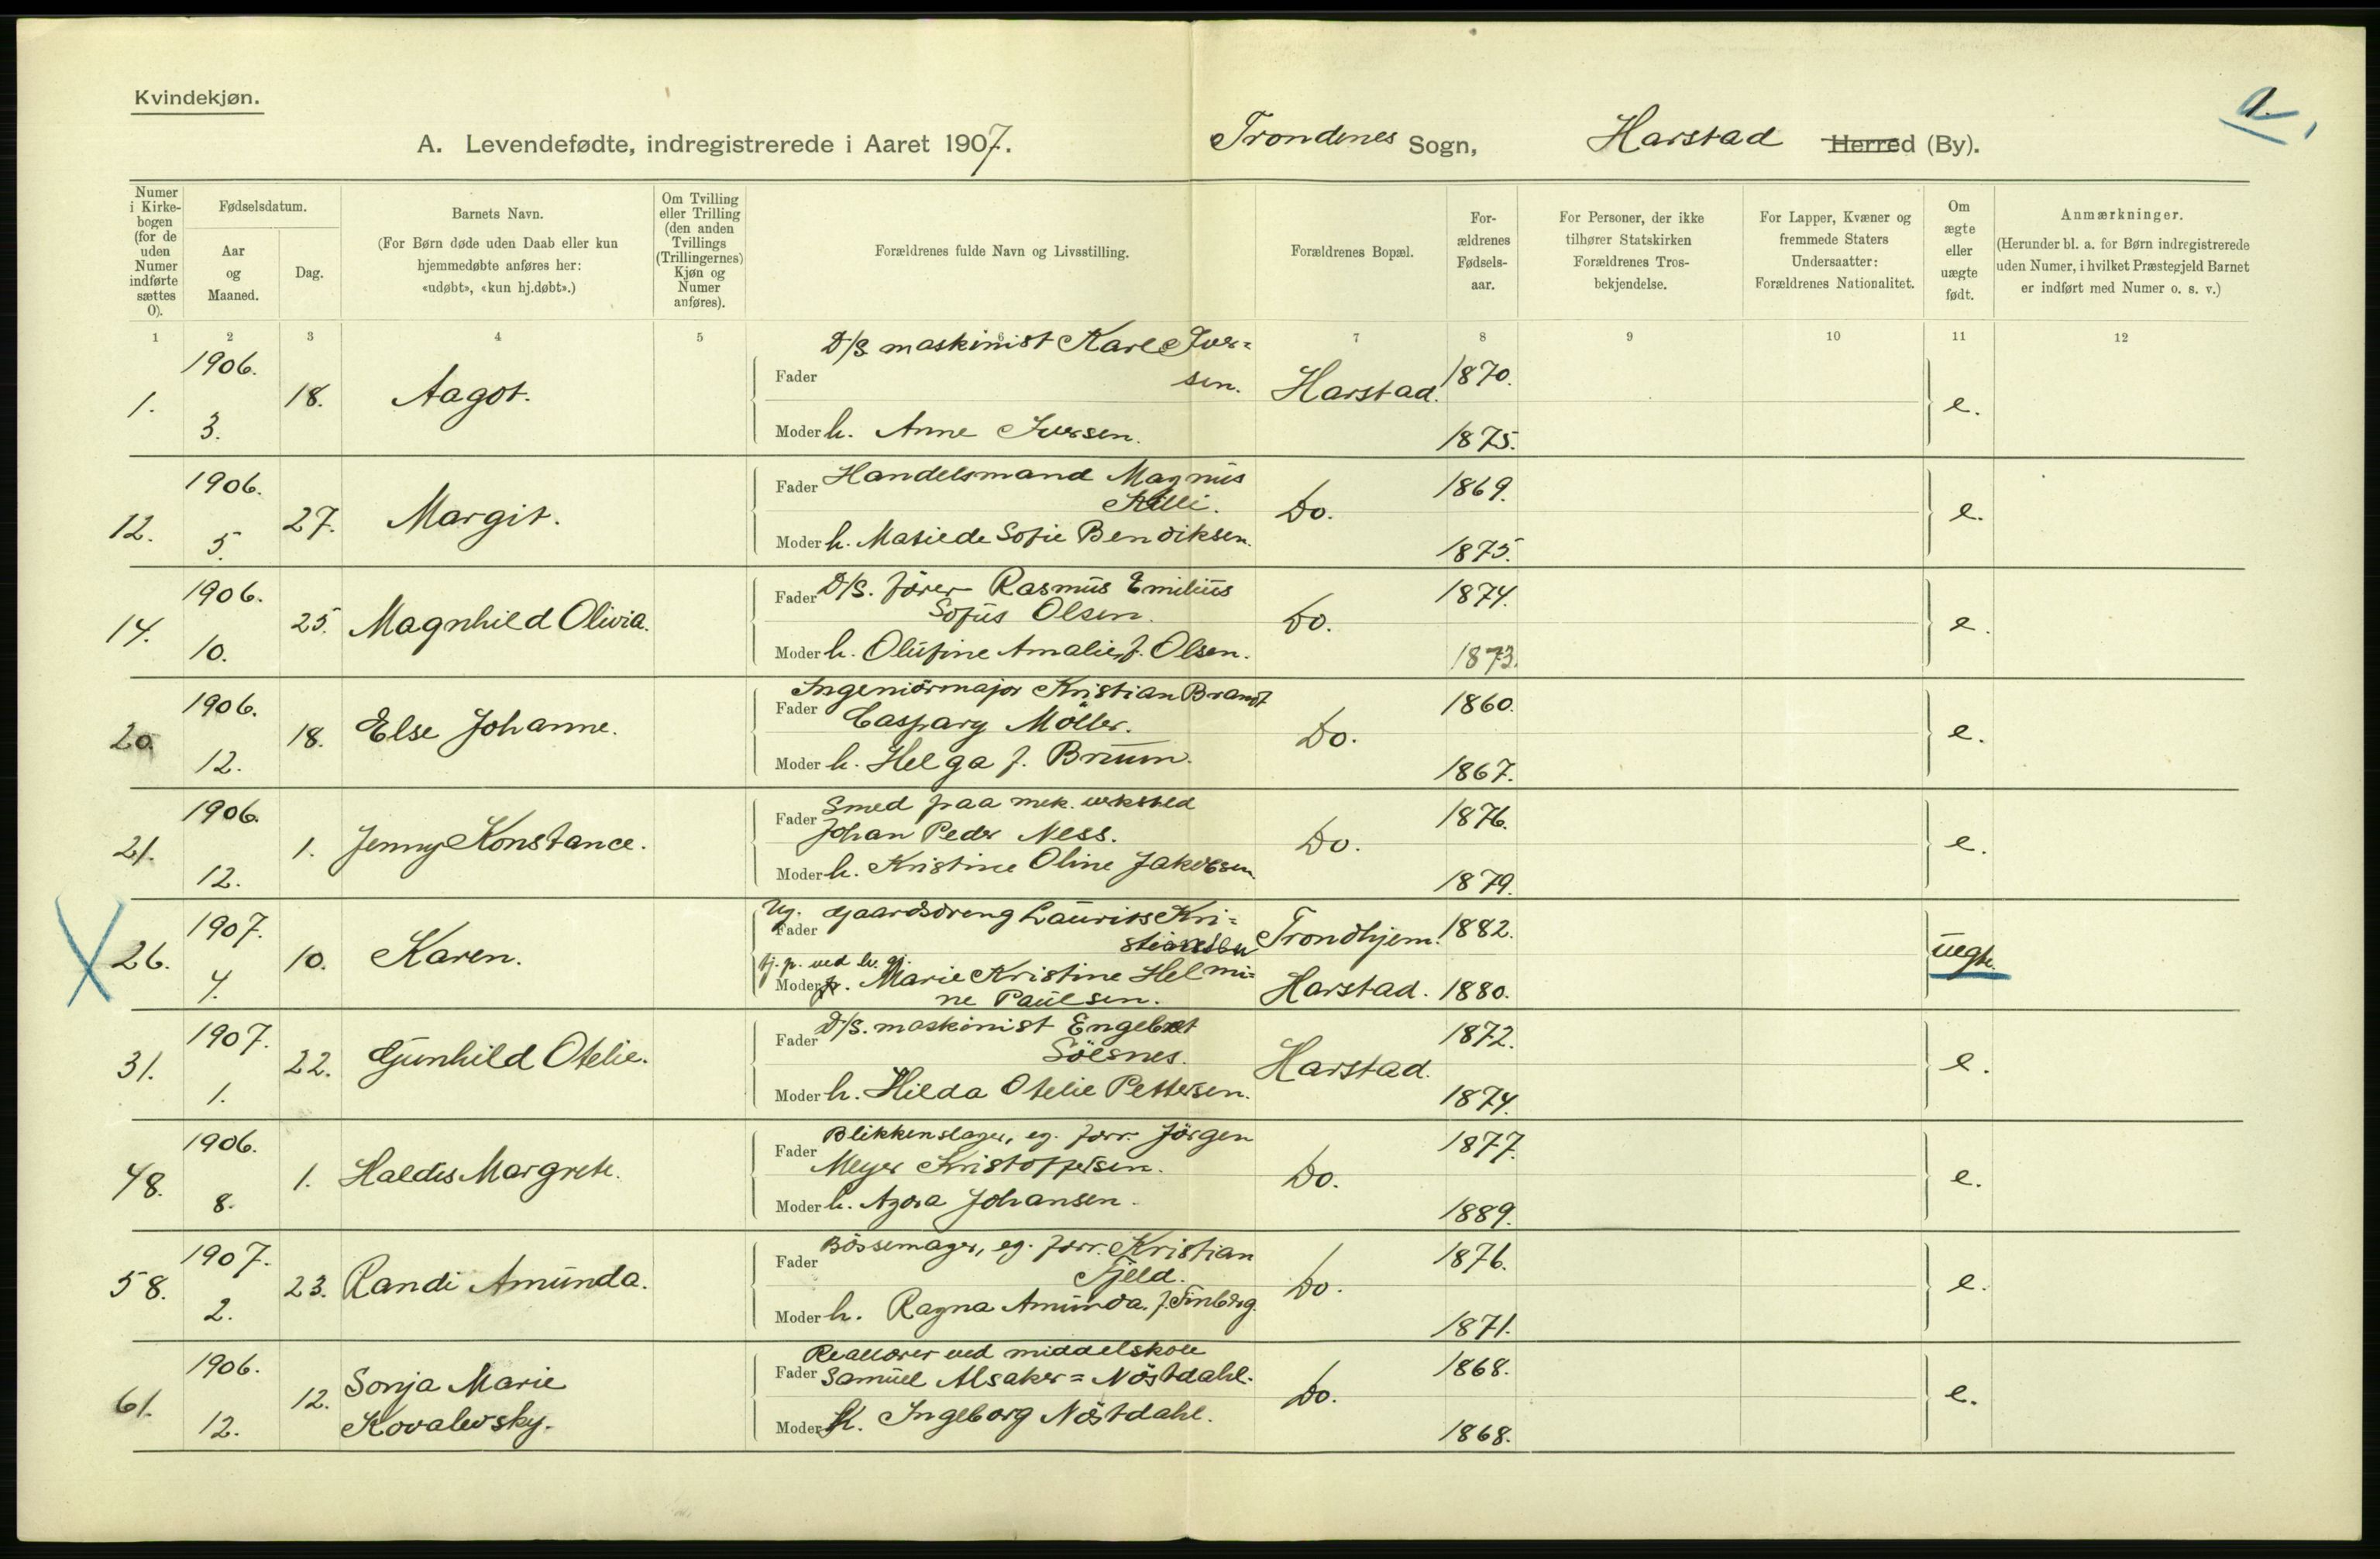 Kvindekjøn.
A. Levendefødte, indregistrerede i Aaret 1907. Trondenes Sogn, Harstad Herred (By).
Numer i Kirkebogen (for de uden Numer indførte sættes 0).
Fødselsdatum.
Aar og Maaned.
Dag.
Barnets Navn.
(For Børn døde uden Daab eller kun hjemmedøbte anføres her: «udøbt», «kun hj.døbt».)
Om Tvilling eller Trilling (den anden Tvillings (Trillingernes) Kjøn og Numer anføres).
Forældrenes fulde Navn og Livsstilling.
Forældrenes Bopæl.
For-
ældrenes
Fødsels-
aar.
For Personer, der ikke
tilhører Statskirken
Forældrenes Tros-
bekjendelse.
For Lapper, Kvæner og
fremmede Staters
Undersaatter:
Forældrenes Nationalitet.
Om ægte eller uægte født.
Anmærkninger.
(Herunder bl. a. for Børn indregistrerede
uden Numer, i hvilket Præstegjeld Barnet
er indført med Numer o. s. v.)
1 2 3 4 5 6 7 8 9 10 11 12
1. 1906. 3. 18. Aagot.
Fader D/S maskinist Karl Iver=
sen. Harstad. 1870. e.
Moder h. Anne Iversen. 1875.
12. 1906. 5. 27. Margit.
Fader Handelsmand Magnus
Killi. Do. 1869. e.
Moder h. Matilde Sofie Bendiksen. 1875.
14. 1906. 10. 25. Magnhild Olivia.
Fader D/S. fører Rasmus Emilius
Sofus Olsen. Do. 1874. e.
Moder h. Olufine Amalie f. Olsen. 1873.
20. 1906. 12. 18. Else Johanne.
Fader Ingeniörmajor Kristian Brandt
Caspary Möller. Do. 1860. e.
Moder h. Helga f. Bruun. 1867.
21. 1906. 12. 1. Jenny Konstance.
Fader Smed paa mek. verksted
Johan Peder Ness. Do. 1876. e.
Moder h. Kristine Oline Jakobsen. 1879.
26. 1907. 4. 10. Karen.
Fader Ug. Gaardsdreng Laurits Kri=
stiansen Trondhjem. 1882. uegte.
tj. p. ved hv. gj.
Moder p. Marie Kristine Helmi=
ne Paulsen. Harstad. 1880.
31. 1907. 1. 22. Gunhild Otelie.
Fader D/S. maskinist Engebret
Sölsnes. Harstad. 1872. e.
Moder h. Hilda Otelie Pettersen. 1874.
48. 1906. 8. 1. Haldis Margrete.
Fader Blikkenslager, eg. forr. Jörgen
Meyer Kristoffersen. Do. 1877. e.
Moder h. Agora Johansen. 1889.
58. 1907. 2. 23. Randi Amunda.
Fader Bössemager, eg. forr. Kristian
Fjeld. Do. 1876. e.
Moder h. Ragna Amunda f. Finberg. 1871.
61. 1906. 12. 12. Sonja Marie
Kovalevsky.
Fader Reallærer ved middelskole
Samuel Alsaker=Nöstdahl. Do. 1868. e.
Moder h. Ingeborg Nöstdahl. 1868.